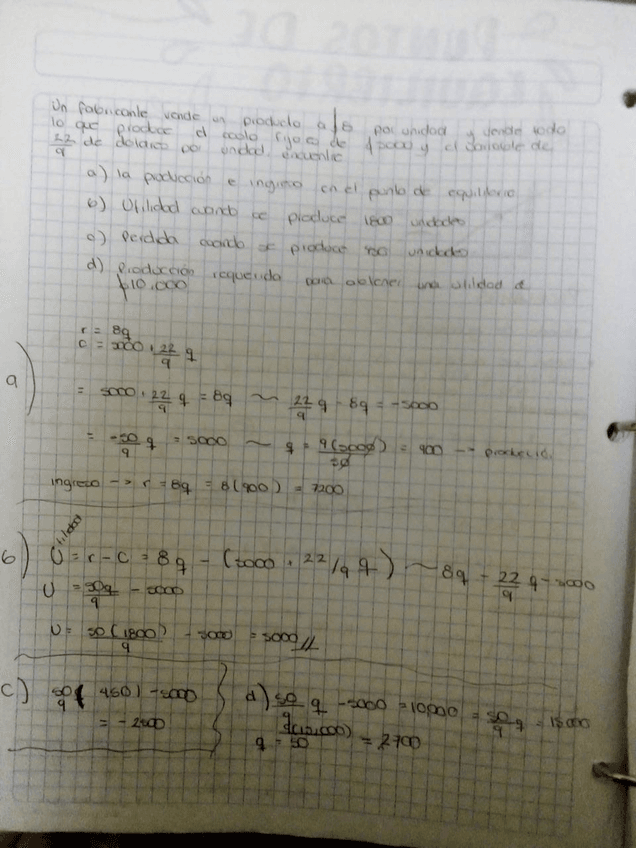 PUNTOS DE
EQUILIBRIO
Un fabricante vende un producto a $8 por unidad y vende todo
lo que produce el costo fijo es de $5000 y el variable de
22/9 de dolares por unidad encuentre
a) la producción e ingreso en el punto de equilibrio
b) Utilidad cuando se produce 1800 unidades
c) Perdida cuando se produce 450 unidades
d) producción requerida para obtener una utilidad de
$10,000
r = 8q
a) c = 5000 + 22/9 q
= 5000 + 22/9 q = 8q ~ 22/9 q - 8q = -5000
= -50/9 q = 5000 ~ q = 9(5000)/50 = 900 --> producció.
ingreso --> r = 8q = 8(900) = 7200
b) Utilidad = r - C = 8q - (5000 + 22/9 q) ~ 8q - 22/9 q - 5000
U = 50q/9 - 5000
U = 50(1800)/9 - 5000 = 5000 //
c) 50/9 (450) - 5000
= -2500
d) 50/9 q - 5000 = 10,000 = 50/9 q = 15000
q = 9(15,000)/50 = 2700